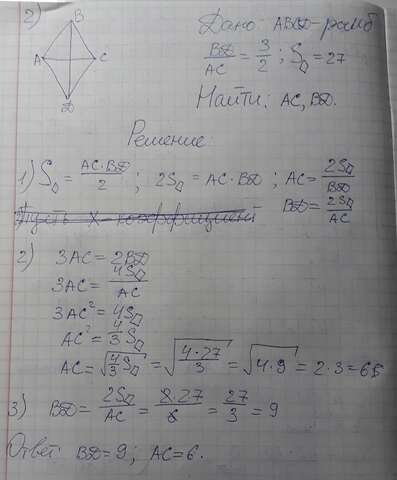 2)
B
A
C
D
Дано: ABCD-ромб
BD/AC = 3/2 ; S◊ = 27
Найти: AC, BD.
Решение:
1) S◊ = AC·BD/2 ; 2S◊ = AC·BD ; AC = 2S◊/BD
BD = 2S◊/AC
Пусть x - коэффициент
2) 3AC = 2BD
3AC = 4S◊/AC
3AC² = 4S◊
AC² = 4/3 S◊
AC = √(4/3 S◊) = √(4·27/3) = √(4·9) = 2·3 = 6
3) BD = 2S◊/AC = 2·27/6 = 27/3 = 9
Ответ: BD = 9; AC = 6.